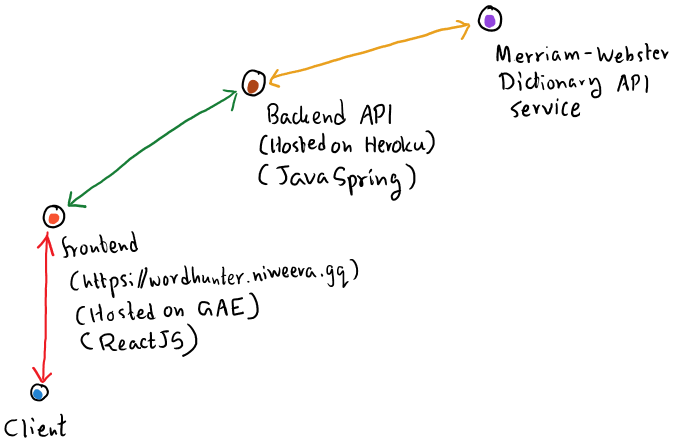 Merriam-Webster
Dictionary API
service
Backend API
(Hosted on Heroku)
(JavaSpring)
frontend
(https://wordhunter.niweera.gq)
(Hosted on GAE)
(ReactJS)
Client